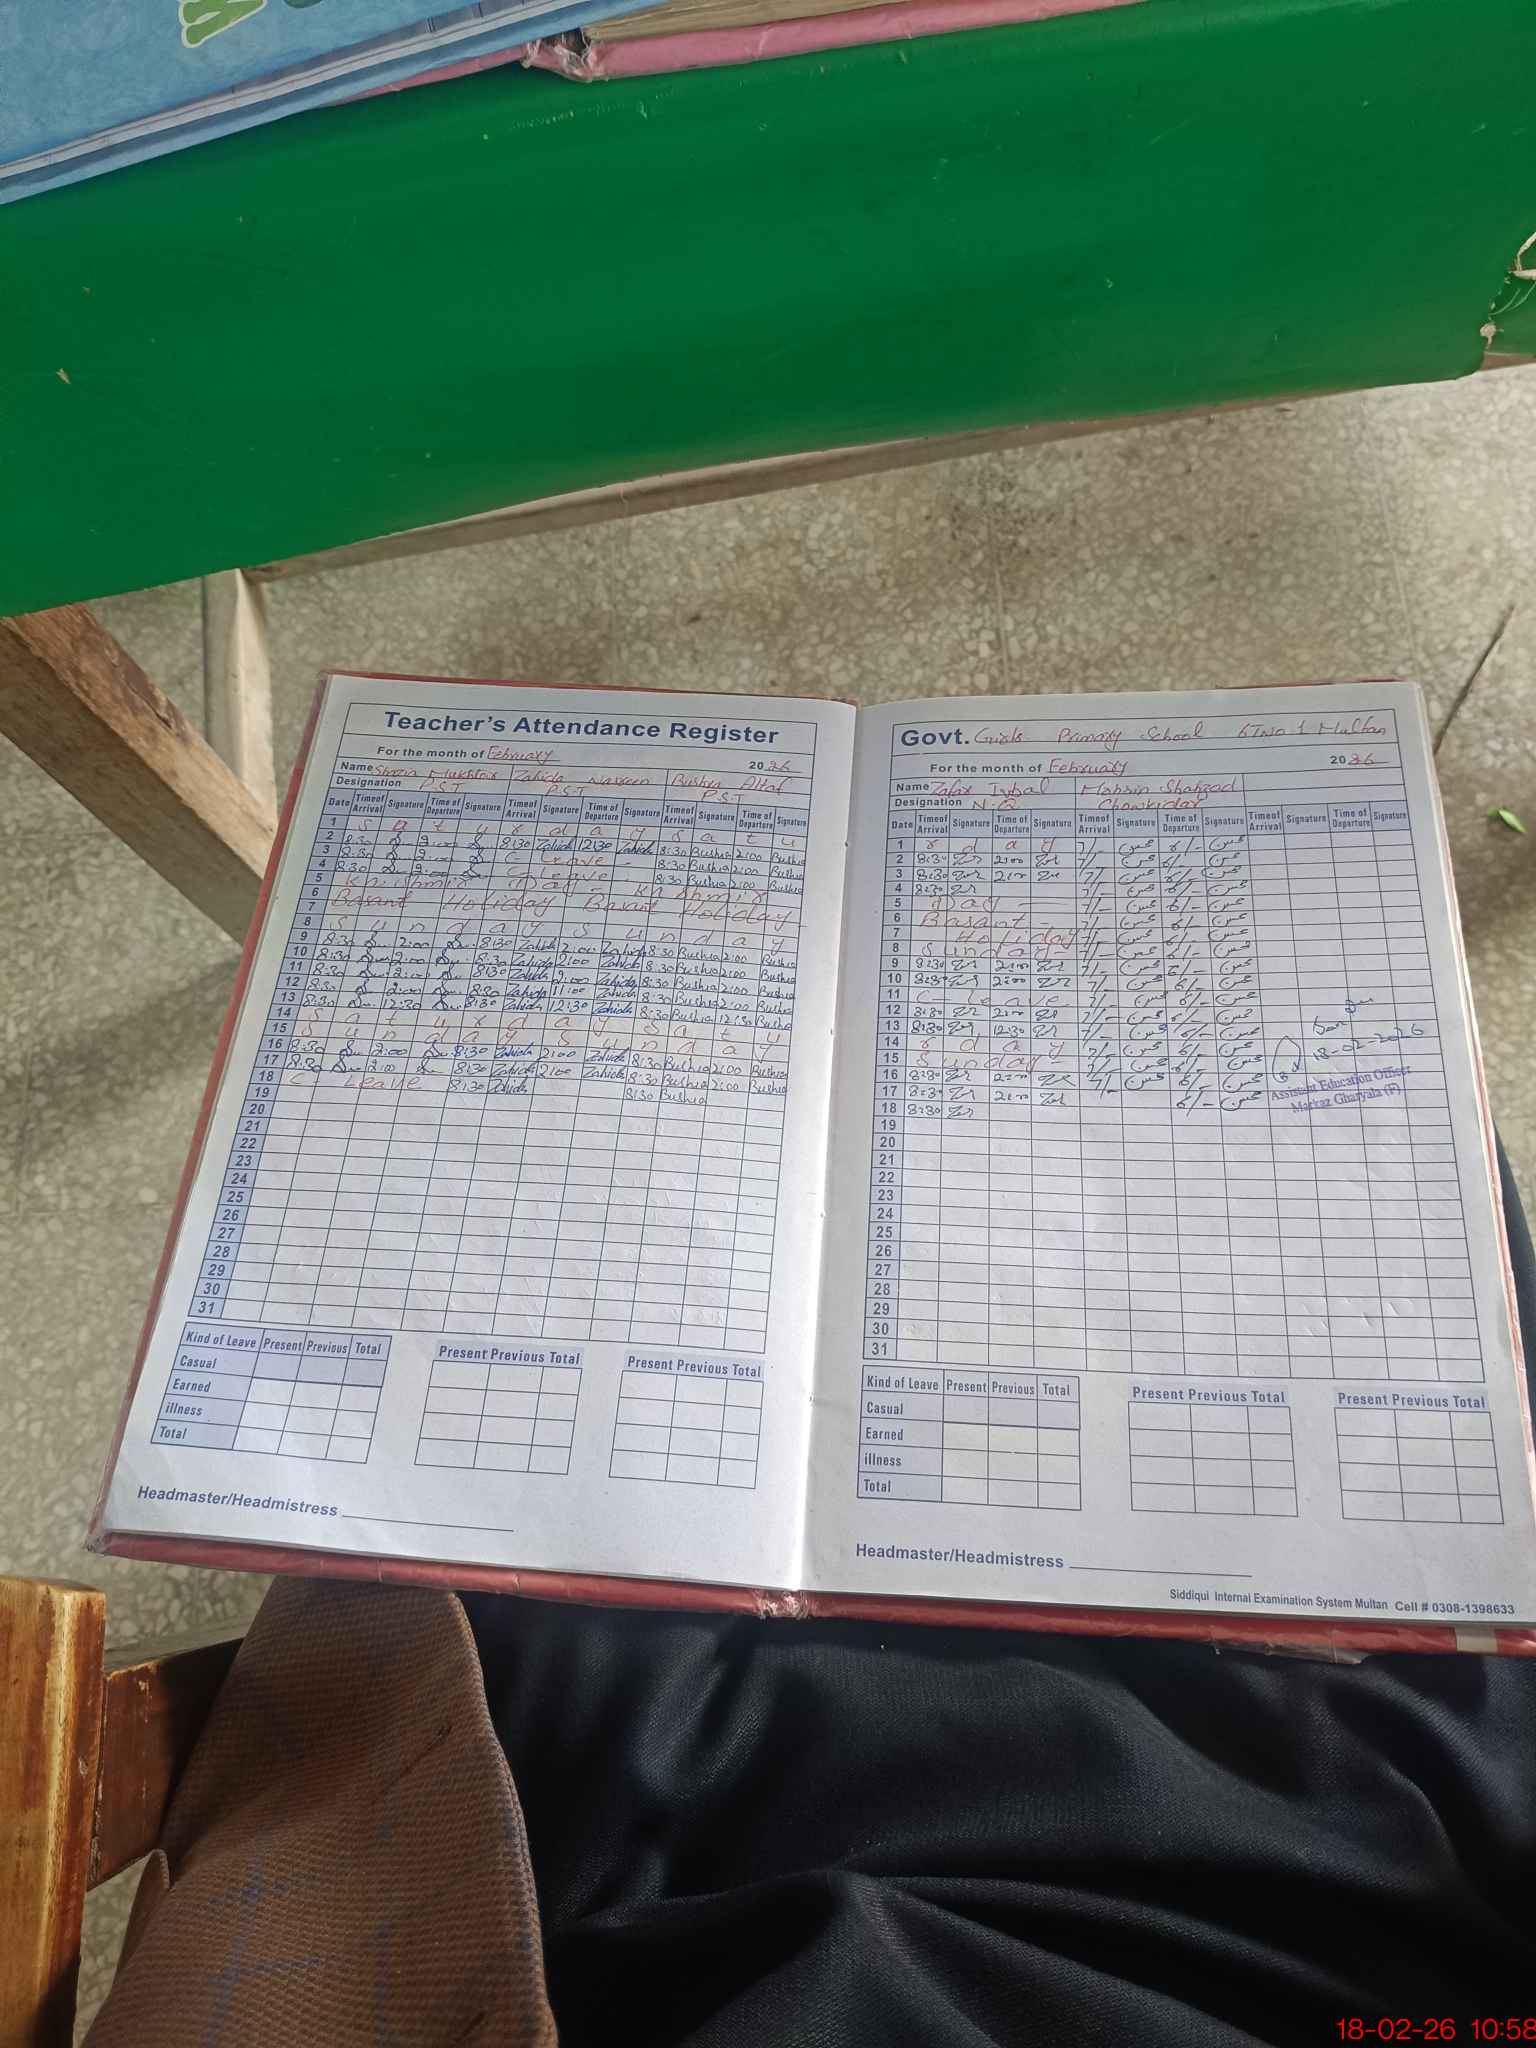 Teacher's Attendance Register
For the month of February 2026
Name Shazia Mukhtar Zahida Nasreen Bushra Altaf
Designation P.S.T P.S.T P.S.T
Date Time of Arrival Signature Time of Departure Signature Time of Arrival Signature Time of Departure Signature Time of Arrival Signature Time of Departure Signature
1 S a t u r d a y S a t u
2 8:30 2:00 8:30 Zahida 12:30 Zahida 8:30 Bushra 2:00 Bushra
3 8:30 2:00 C- Leave - 8:30 Bushra 2:00 Bushra
4 8:30 2:00 C- Leave - 8:30 Bushra 2:00 Bushra
5 Khishmir Day - Khishmir
6 Basant Holiday Basant Holiday
7
8 S u n d a y S u n d a y
9 8:30 2:00 8:30 Zahida 2:00 Zahida 8:30 Bushra 2:00 Bushra
10 8:30 2:00 8:30 Zahida 2:00 Zahida 8:30 Bushra 2:00 Bushra
11 8:30 2:00 8:30 Zahida 2:00 Zahida 8:30 Bushra 2:00 Bushra
12 8:30 2:00 8:30 Zahida 11:00 Zahida 8:30 Bushra 2:00 Bushra
13 8:30 12:30 8:30 Zahida 12:30 Zahida 8:30 Bushra 12:30 Bushra
14 S a t u r d a y S a t u
15 S u n d a y S u n d a y
16 8:30 2:00 8:30 Zahida 2:00 Zahida 8:30 Bushra 2:00 Bushra
17 8:30 2:00 8:30 Zahida 2:00 Zahida 8:30 Bushra 2:00 Bushra
18 C- Leave 8:30 Zahida 8:30 Bushra
19
20
21
22
23
24
25
26
27
28
29
30
31
Kind of Leave Present Previous Total Present Previous Total Present Previous Total
Casual
Earned
illness
Total
Headmaster/Headmistress
Govt. Girls Primary School 6T No 1 Multan
For the month of February 2026
Name Zafar Iqbal Mohsin Shahzad
Designation N.Q Chowkidar
Date Time of Arrival Signature Time of Departure Signature Time of Arrival Signature Time of Departure Signature Time of Arrival Signature Time of Departure Signature
1 r d a y 7/- محسن 6/- محسن
2 8:30 2:00 7/- محسن 6/- محسن
3 8:30 2:00 7/- محسن 6/- محسن
4 8:30 7/- محسن 6/- محسن
5 Day 7/- محسن 6/- محسن
6 Basant - 7/- محسن 6/- محسن
7 Holiday 7/- محسن 6/- محسن
8 Sunday - 7/- محسن 6/- محسن
9 8:30 2:00 7/- محسن 6/- محسن
10 8:30 2:00 7/- محسن 6/- محسن
11 C- Leave 7/- محسن 6/- محسن
12 8:30 2:00 7/- محسن 6/- محسن
13 8:30 12:30 7/- محسن 6/- محسن
14 r d a y 7/- محسن 6/- محسن
15 Sunday 7/- محسن 6/- محسن
16 8:30 2:00 7/- محسن 6/- محسن
17 8:30 2:00 6/- محسن
18 8:30
18-02-2026
Assistant Education Officer
Markaz Gharyala (F)
19
20
21
22
23
24
25
26
27
28
29
30
31
Kind of Leave Present Previous Total Present Previous Total Present Previous Total
Casual
Earned
illness
Total
Headmaster/Headmistress
Siddiqui Internal Examination System Multan Cell # 0308-1398633
18-02-26 10:58